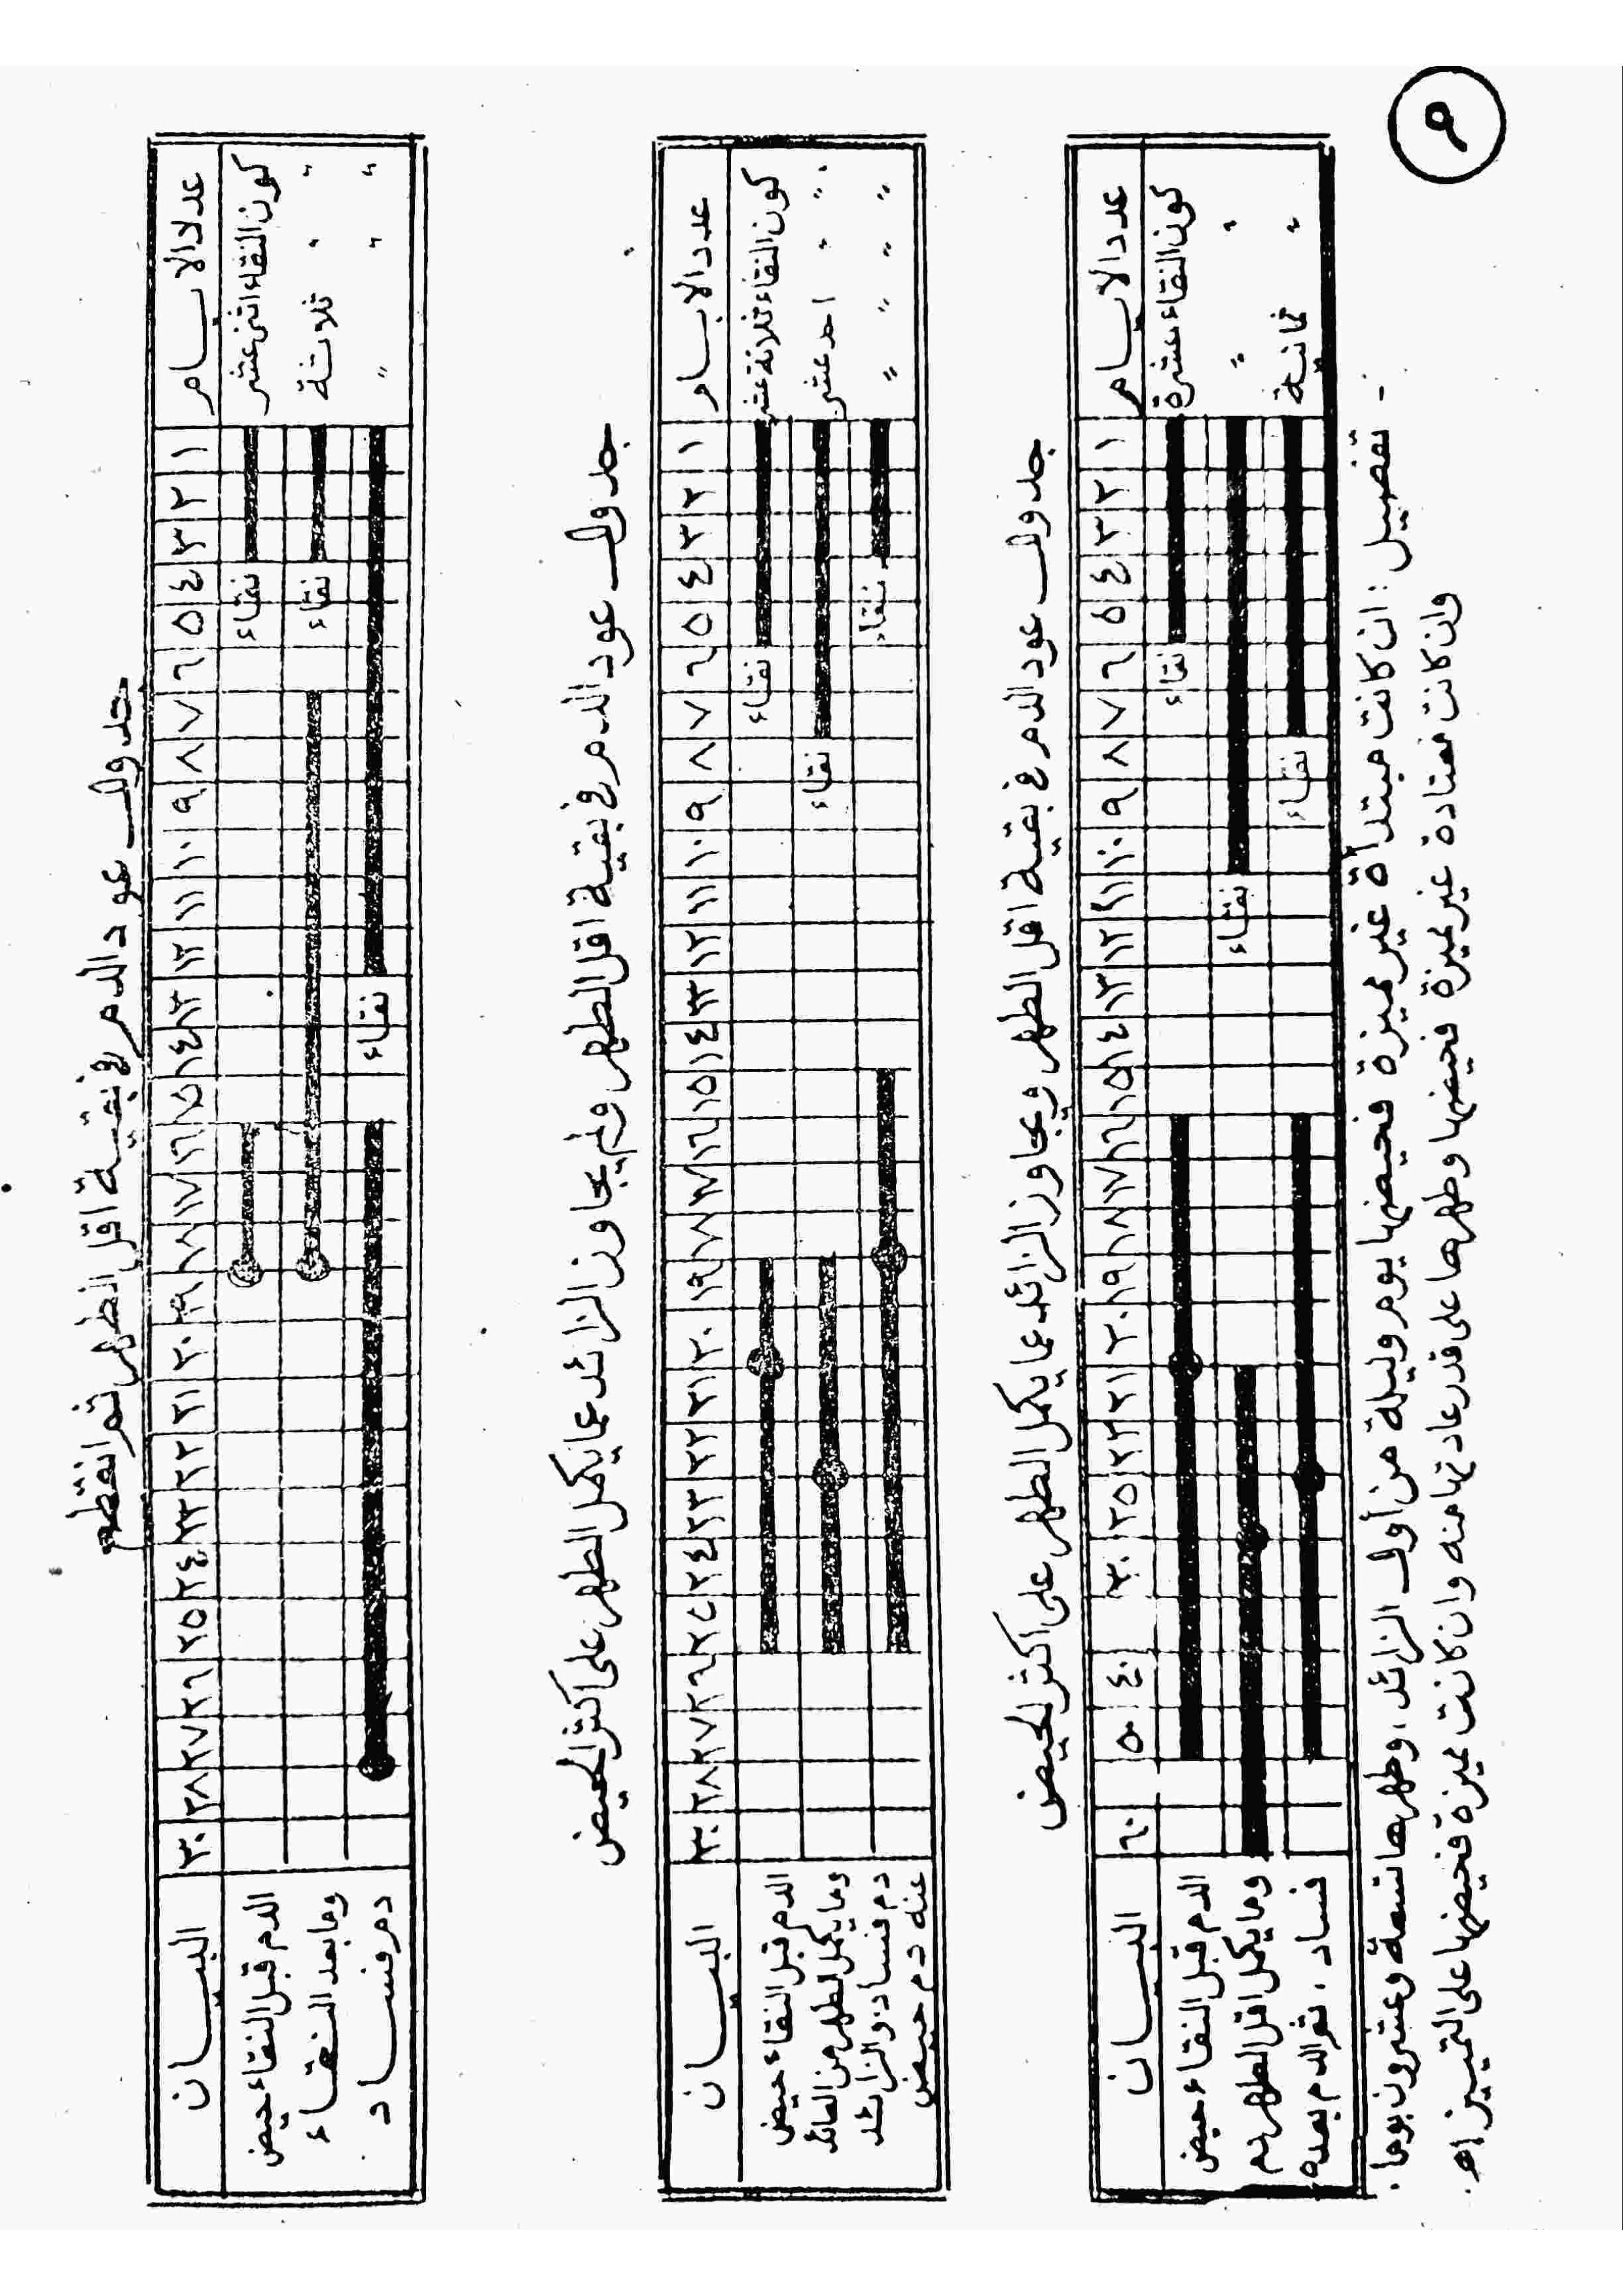 ٩
جدول عود الدم في بقية اقل الطهر ثم انقطع
عدد الايام ١ ٢ ٣ ٤ ٥ ٦ ٧ ٨ ٩ ١٠ ١١ ١٢ ١٣ ١٤ ١٥ ١٦ ١٧ ١٨ ١٩ ٢٠ ٢١ ٢٢ ٢٣ ٢٤ ٢٥ ٢٦ ٢٧ ٢٨ ٣٠ البيان
كون النقاء اثنى عشر نقاء الدم قبل النقاء حيض
" " ثلاثة نقاء وما بعد النقاء
" " " نقاء دم فساد
جدول عود الدم في بقية اقل الطهر ولم يجاوز الزائد عما يكمل الطهر على اكثر الحيض
عدد الايام ١ ٢ ٣ ٤ ٥ ٦ ٧ ٨ ٩ ١٠ ١١ ١٢ ١٣ ١٤ ١٥ ١٦ ١٧ ١٨ ١٩ ٢٠ ٢١ ٢٢ ٢٣ ٢٤ ٢٥ ٢٦ ٢٧ ٢٨ ٣٠ البيان
كون النقاء ثلاثة عشر نقاء الدم قبل النقاء حيض
" " احد عشر نقاء وما يكمل الطهر من العائد
" " " " نقاء دم فساد والزائد
عنه دم حيض
جدول عود الدم في بقية اقل الطهر ويجاوز الزائد عما يكمل الطهر على اكثر الحيض
عدد الايام ١ ٢ ٣ ٤ ٥ ٦ ٧ ٨ ٩ ١٠ ١١ ١٢ ١٣ ١٤ ١٥ ١٦ ١٧ ١٨ ١٩ ٢٠ ٢١ ٢٢ ٢٥ ٣٠ ٤٠ ٥٠ ٦٠ البيان
كون النقاء عشرة نقاء الدم قبل النقاء حيض
" " نقاء وما يكمل اقل الطهر دم
" ثمانية نقاء فساد، ثم الدم بعده
تفصيل : ان كانت مبتدأة غير مميزة فحيضها يوم وليلة من أول الزائد، وطهرها تسعة وعشرون يوما.
وان كانت معتادة غير مميزة فحيضها وطهرها على قدر عادتها منه وان كانت مميزة فحيضها على التمييز اهـ.